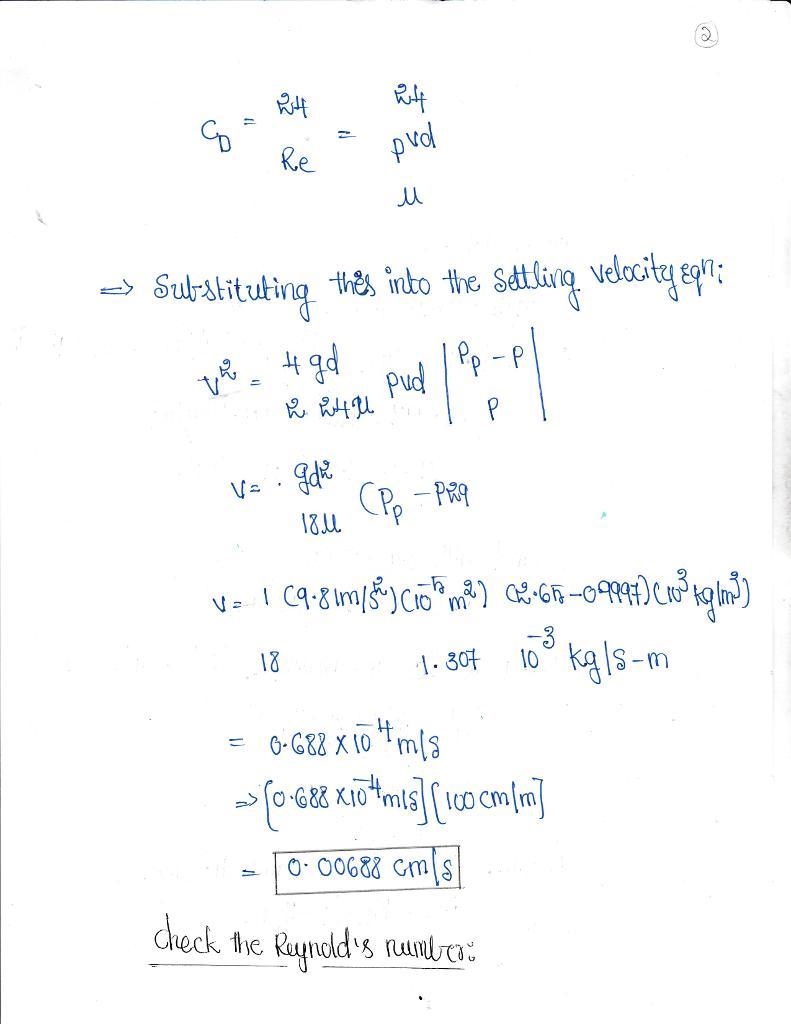 2
C_D = 24 / Re = 24 / ρvd / μ
=> Substituting this into the settling velocity eqn:
v² = 4 gd / 2 24μ ρvd | Pp - P / P |
V = . gd² / 18μ (Pp - P29
V = 1 (9.81m/s²) (10⁻⁵ m²) (2.65-09997) (10³ kg/m³)
18 1.307 10⁻³ kg/s-m
= 0.688 x 10⁻⁴ m/s
=> [0.688 x10⁻⁴m/s] [100 cm/m]
= 0.00688 cm/s
check the Reynold's number: